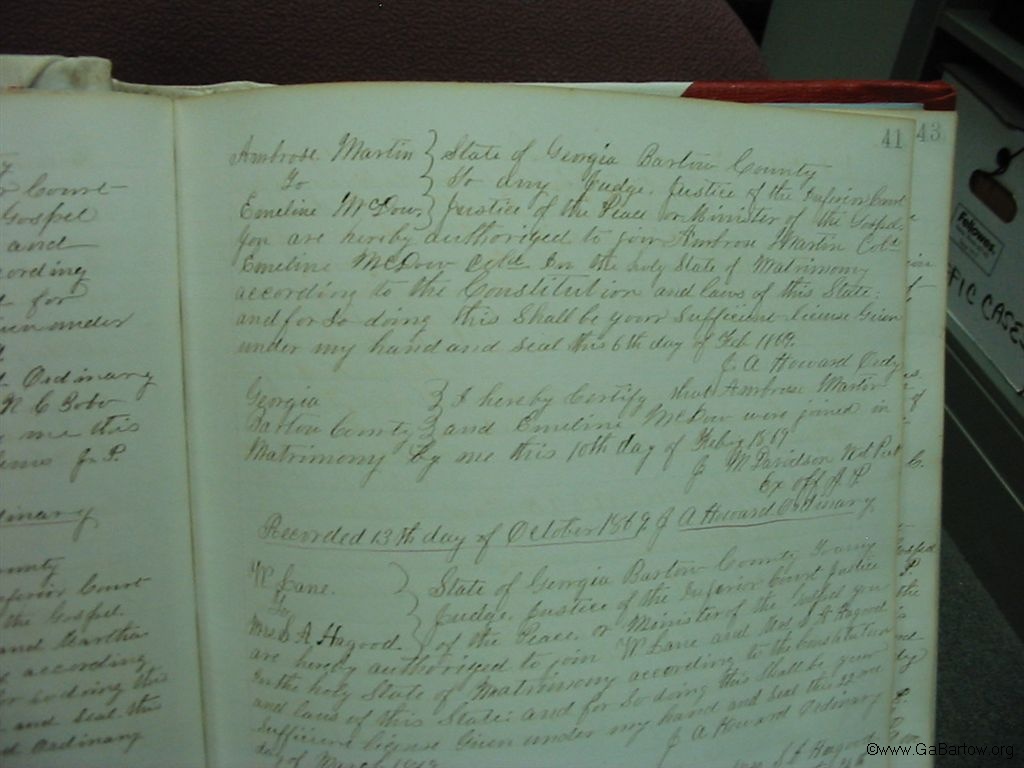 41
43
Ambrose Martin } State of Georgia Bartow County
To } To any Judge, Justice of the Inferior Court
Emeline McDow } Justice of the Peace or Minister of the Gospel,
you are hereby authorized to join Ambrose Martin Cold
Emeline McDow Cold In the holy State of Matrimony
according to the Constitution and laws of this State:
and for So doing this Shall be your Sufficient license Given
under my hand and Seal this 6th day of Feb 1869.
J A Howard Ordy
Georgia } I hereby Certify that Ambrose Martin
Bartow County } and Emeline McDow were joined in
Matrimony by me this 10th day of Feby 1869
J M Davidson Not Pub
Ex off J P
Recorded 13th day of October 1869 J A Howard Ordinary
W Lane. } State of Georgia Bartow County To any
To } Judge, Justice of the Inferior Court Justice
Mrs S A Hagood } of the Peace, or Minister of the you
are hereby authorized to join W Lane and Mrs S A Hagood
In the holy State of Matrimony according to the Constitution
and laws of this State: and for So doing this Shall be your
Sufficient license Given under my hand and Seal this
day of March 1869 J A Howard Ordinary
Hagood
Court
Gospel
and
cording
for
under
Ordinary
N C Bobo
me this
J. P.
dinary
unty
nferior Court
the Gospel.
and Martha
according
So doing this
and Seal this
Ordinary
Fellowes
FIC CASE
©www.GaBartow.org